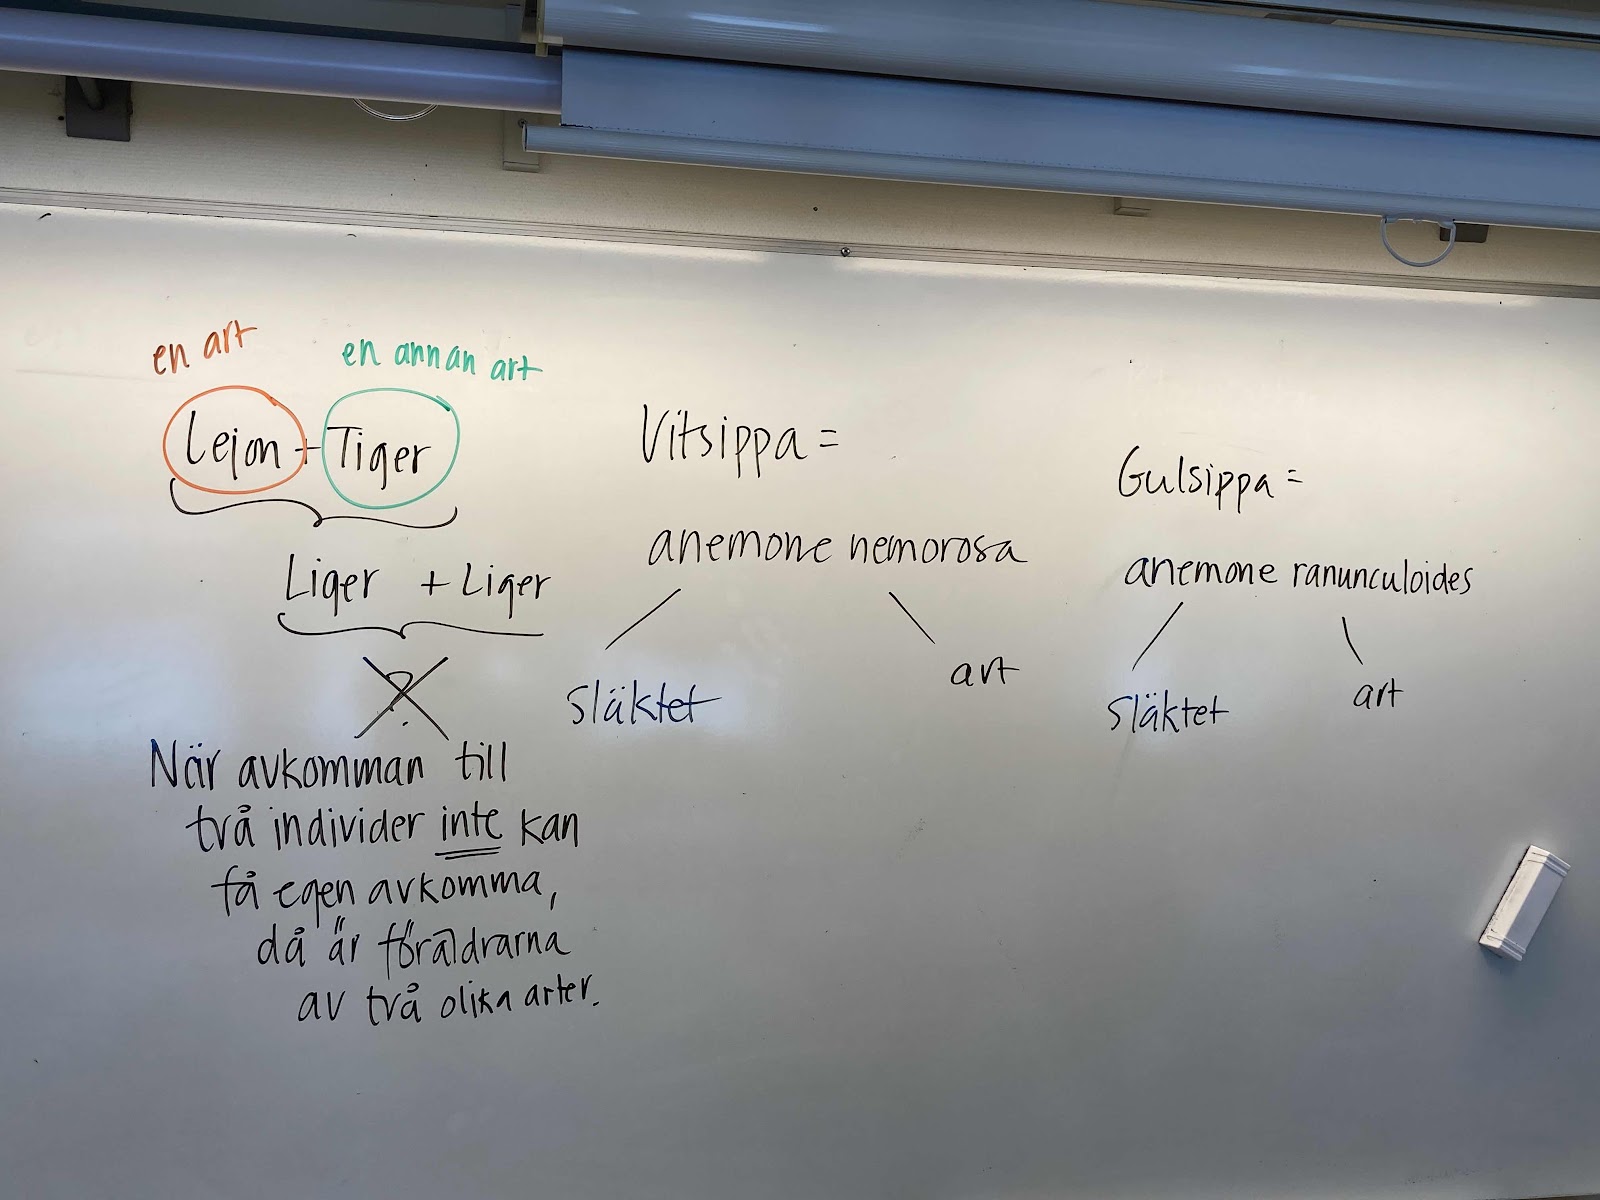 en art
en annan art
Lejon + Tiger
Liger + Liger
?
När avkomman till
två individer inte kan
få egen avkomma,
då är föräldrarna
av två olika arter.
Vitsippa =
anemone nemorosa
släktet
art
Gulsippa =
anemone ranunculoides
släktet
art